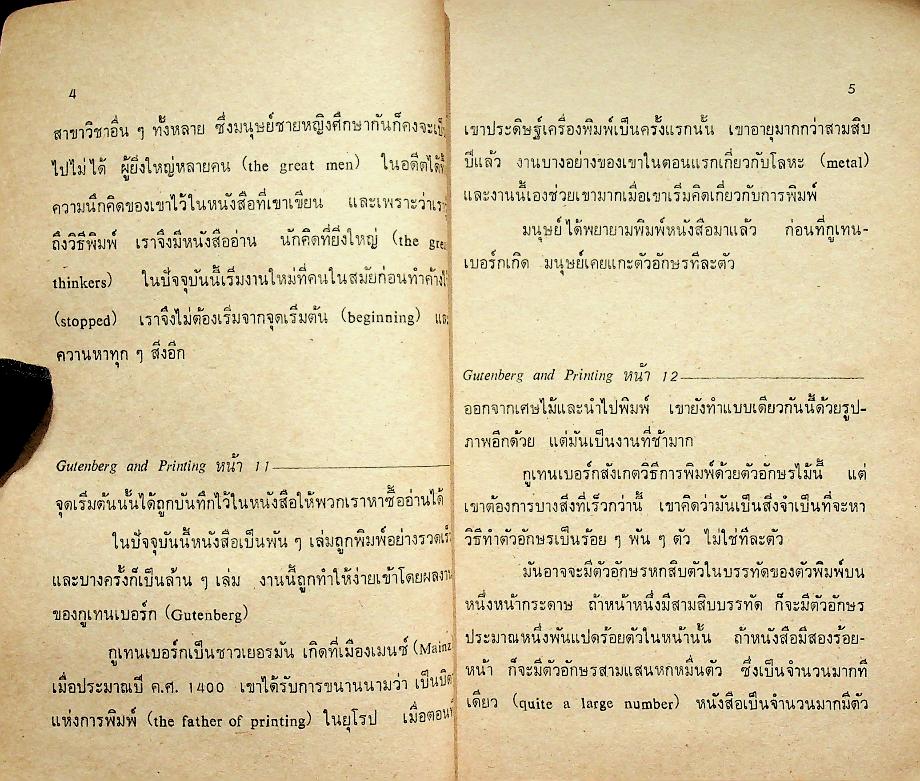 4
สาขาวิชาอื่น ๆ ทั้งหลาย ซึ่งมนุษย์ชายหญิงศึกษากันก็คงจะเป็น
ไปไม่ได้ ผู้ยิ่งใหญ่หลายคน (the great men) ในอดีตได้
ความนึกคิดของเขาไว้ในหนังสือที่เขาเขียน และเพราะว่าเรา
ถึงวิธีพิมพ์ เราจึงมีหนังสืออ่าน นักคิดที่ยิ่งใหญ่ (the great
thinkers) ในปัจจุบันนี้เริ่มงานใหม่ที่คนในสมัยก่อนทำค้าง
(stopped) เราจึงไม่ต้องเริ่มจากจุดเริ่มต้น (beginning) และ
ควานหาทุก ๆ สิ่งอีก
Gutenberg and Printing หน้า 11
จุดเริ่มต้นนั้นได้ถูกบันทึกไว้ในหนังสือให้พวกเราหาซื้ออ่านได้
ในปัจจุบันนี้หนังสือเป็นพัน ๆ เล่มถูกพิมพ์อย่างรวดเร็ว
และบางครั้งก็เป็นล้าน ๆ เล่ม งานนี้ถูกทำให้ง่ายเข้าโดยผลงาน
ของกูเทนเบอร์ก (Gutenberg)
กูเทนเบอร์กเป็นชาวเยอรมัน เกิดที่เมืองเมนซ์ (Mainz
เมื่อประมาณปี ค.ศ. 1400 เขาได้รับการขนานนามว่า เป็นบิดา
แห่งการพิมพ์ (the father of printing) ในยุโรป เมื่อตอนที่
5
เขาประดิษฐ์เครื่องพิมพ์เป็นครั้งแรกนั้น เขาอายุมากกว่าสามสิบ
ปีแล้ว งานบางอย่างของเขาในตอนแรกเกี่ยวกับโลหะ (metal)
และงานนี้เองช่วยเขามากเมื่อเขาเริ่มคิดเกี่ยวกับการพิมพ์
มนุษย์ได้พยายามพิมพ์หนังสือมาแล้ว ก่อนที่กูเทน-
เบอร์กเกิด มนุษย์เคยแกะตัวอักษรทีละตัว
Gutenberg and Printing หน้า 12
ออกจากเศษไม้และนำไปพิมพ์ เขายังทำแบบเดียวกันนี้ด้วยรูป-
ภาพอีกด้วย แต่มันเป็นงานที่ช้ามาก
กูเทนเบอร์กสังเกตวิธีการพิมพ์ด้วยตัวอักษรไม้นี้ แต่
เขาต้องการบางสิ่งที่เร็วกว่านี้ เขาคิดว่ามันเป็นสิ่งจำเป็นที่จะหา
วิธีทำตัวอักษรเป็นร้อย ๆ พัน ๆ ตัว ไม่ใช่ทีละตัว
มันอาจจะมีตัวอักษรหกสิบตัวในบรรทัดของตัวพิมพ์บน
หนึ่งหน้ากระดาษ ถ้าหน้าหนึ่งมีสามสิบบรรทัด ก็จะมีตัวอักษร
ประมาณหนึ่งพันแปดร้อยตัวในหน้านั้น ถ้าหนังสือมีสองร้อย-
หน้า ก็จะมีตัวอักษรสามแสนหกหมื่นตัว ซึ่งเป็นจำนวนมากที
เดียว (quite a large number) หนังสือเป็นจำนวนมากมีตัว